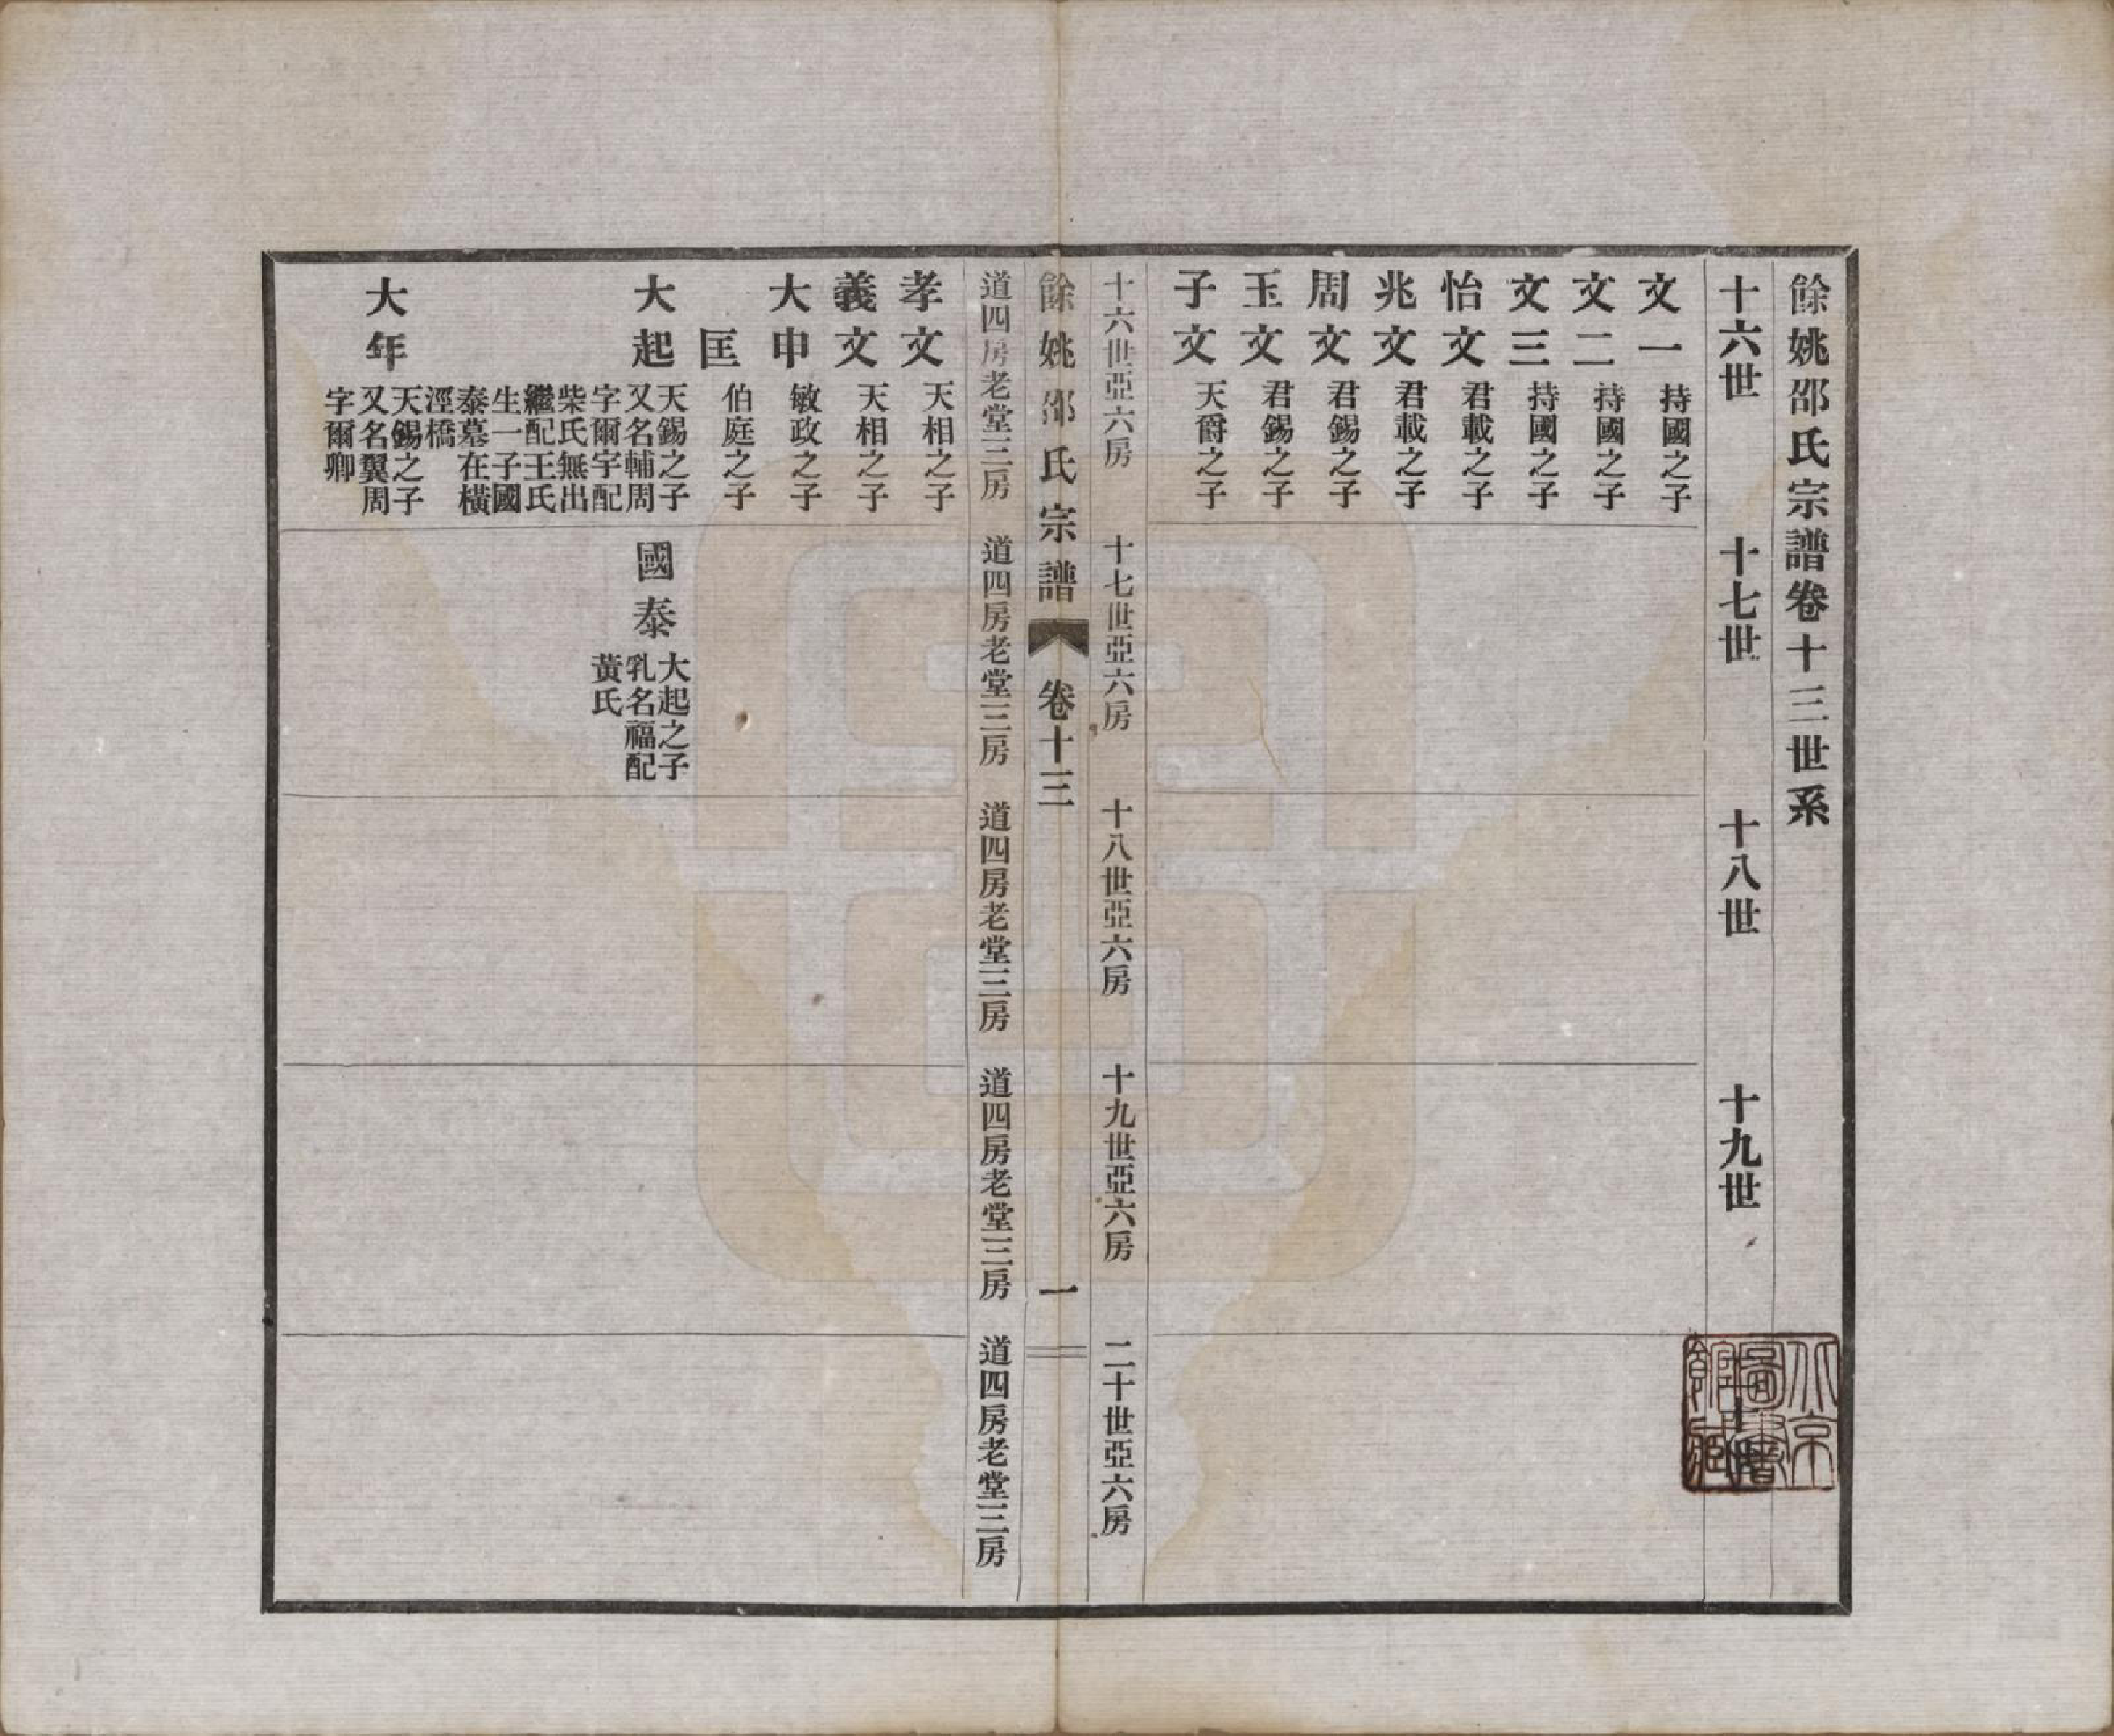 餘姚邵氏宗譜卷十三世系
十六世
十七世
十八世
十九世
文一 持國之子
文二 持國之子
文三 持國之子
怡文 君載之子
兆文 君載之子
周文 君錫之子
玉文 君錫之子
子文 天爵之子
十六世亞六房
十七世亞六房
十八世亞六房
十九世亞六房
二十世亞六房
餘姚邵氏宗譜
卷十三
一
道四房老堂三房
道四房老堂三房
道四房老堂三房
道四房老堂三房
道四房老堂三房
孝文 天相之子
義文 天相之子
大申 敏政之子
匡 伯庭之子
大起
天錫之子
又名輔周
字爾宇配
柴氏無出
繼配王氏
生一子國
泰墓在橫
涇橋
國泰
大起之子
乳名福配
黃氏
大年
天錫之子
又名翼周
字爾卿
北京
圖書
館藏